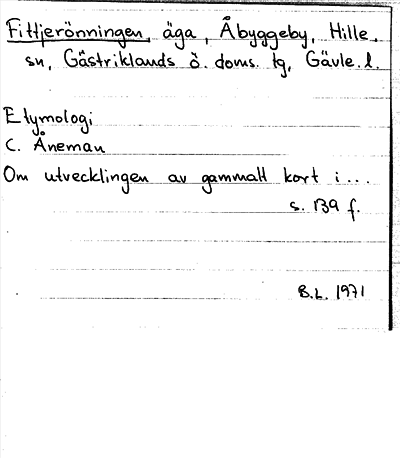 Fittjerönningen, äga, Åbyggeby, Hille
sn, Gästriklands ö. doms. tg, Gävle. l.
Etymologi
C. Åneman
Om utvecklingen av gammalt kort i...
s. 139 f.
B.L. 1971